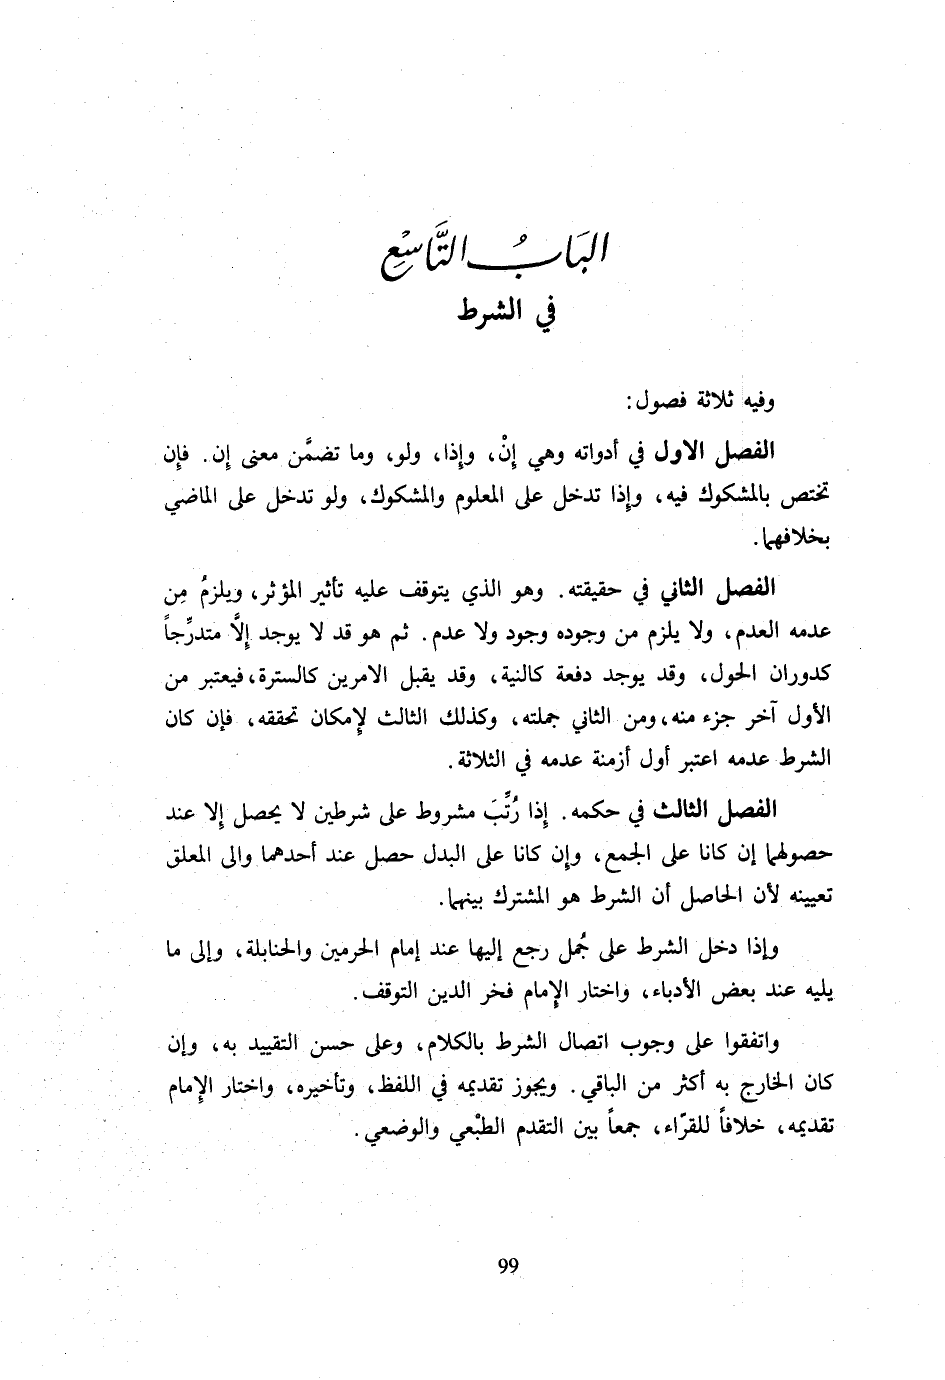 البَابُ التَّاسِع
في الشرط
وفيه ثلاثة فصول:
الفصل الاول في أدواته وهي إنْ، وإذا، ولو، وما تضمَّن معنى إن. فإن
تختص بالمشكوك فيه، وإذا تدخل على المعلوم والمشكوك، ولو تدخل على الماضي
بخلافهما.
الفصل الثاني في حقيقته. وهو الذي يتوقف عليه تأثير المؤثر، ويلزمُ مِن
عدمه العدم، ولا يلزم من وجوده وجود ولا عدم. ثم هو قد لا يوجد إلَّا متدرِّجاً
كدوران الحول، وقد يوجد دفعة كالنية، وقد يقبل الامرين كالسترة، فيعتبر من
الأول آخر جزء منه، ومن الثاني جملته، وكذلك الثالث لإمكان تحققه، فإن كان
الشرط عدمه اعتبر أول أزمنة عدمه في الثلاثة.
الفصل الثالث في حكمه. إذا رُتِّبَ مشروط على شرطين لا يحصل إلا عند
حصولهما إن كانا على الجمع، وإن كانا على البدل حصل عند أحدهما والى المعلق
تعيينه لأن الحاصل أن الشرط هو المشترك بينهما.
وإذا دخل الشرط على جُمل رجع إليها عند إمام الحرمين والحنابلة، وإلى ما
يليه عند بعض الأدباء، واختار الإمام فخر الدين التوقف.
واتفقوا على وجوب اتصال الشرط بالكلام، وعلى حسن التقييد به، وإن
كان الخارج به أكثر من الباقي. ويجوز تقديمه في اللفظ، وتأخيره، واختار الإمام
تقديمه، خلافاً للفرّاء، جمعاً بين التقدم الطبْعي والوضعي.
99